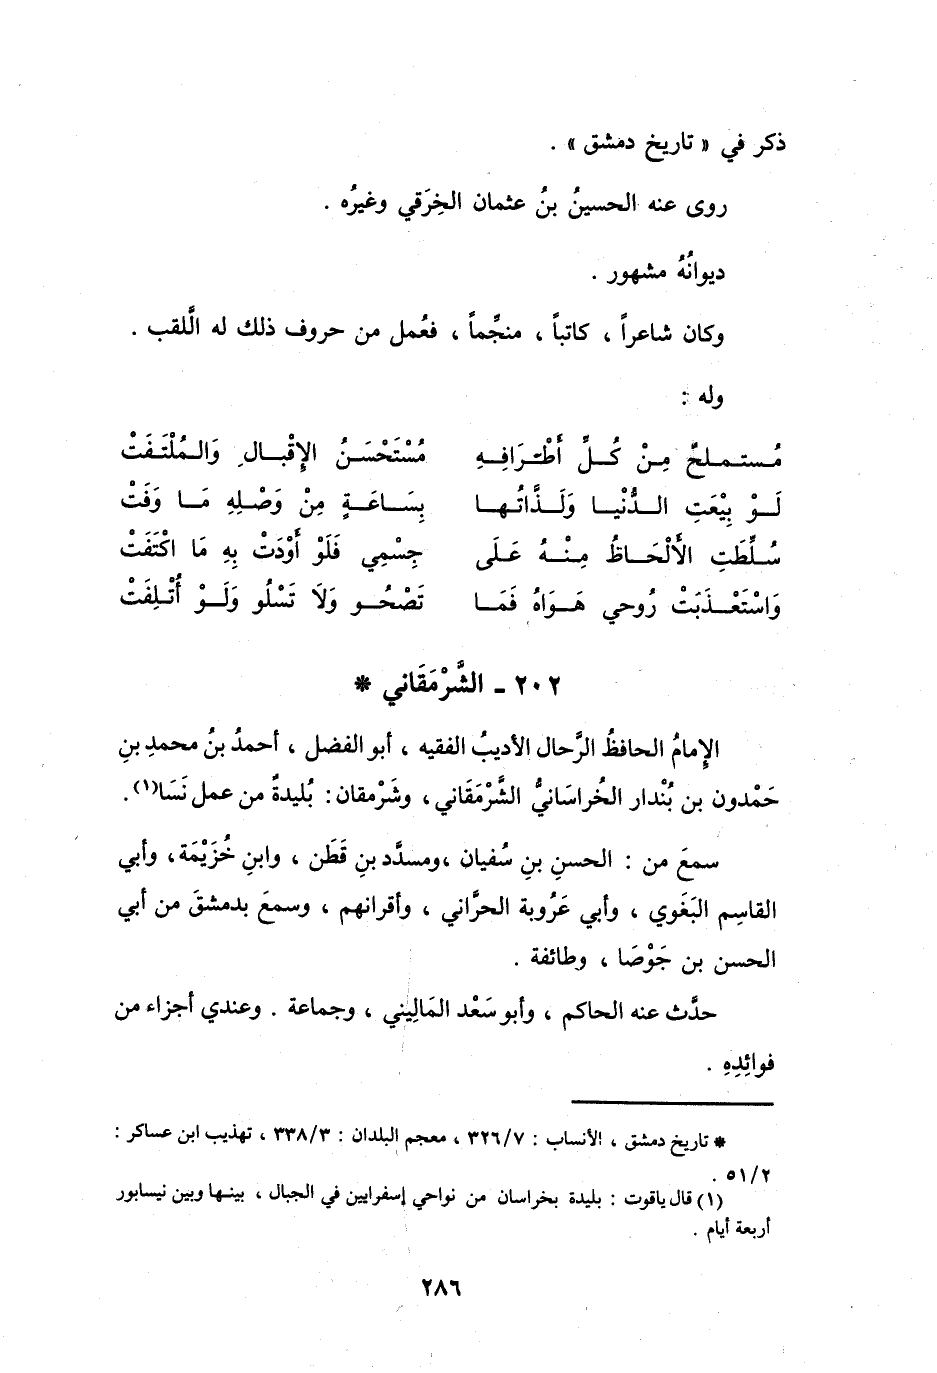 ذكر في « تاريخ دمشق » .
روى عنه الحسينُ بنُ عثمان الخِرَقي وغيرُه .
ديوانُهُ مشهور .
وكان شاعراً ، كاتباً ، منجِّماً ، فعُمل من حروف ذلك له الَّلقب .
وله :
مُستملحٌ مِنْ كُلِّ أَطْرَافِهِ مُسْتَحْسَنُ الإِقْبالِ وَالمُلْتَفَتْ
لَوْ بِيْعَتِ الدُّنْيا وَلَذَّاتُها بِسَاعَةٍ مِنْ وَصْلِهِ مَا وَفَتْ
سُلِّطَتِ الأَلْحَاظُ مِنْهُ عَلَى جِسْمِي فَلَوْ أَوْدَتْ بِهِ مَا اكْتَفَتْ
وَاسْتَعْذَبَتْ رُوحي هَوَاهُ فَمَا تَصْحُو وَلاَ تَسْلُو وَلَوْ أُتْلِفَتْ
٢٠٢ - الشَّرْمَقَاني *
الإِمامُ الحافظُ الرَّحال الأديبُ الفقيه ، أبو الفضل ، أحمدُ بنُ محمدِ بنِ
حَمْدون بن بُنْدار الخُراسَانيُّ الشَّرْمَقَاني ، وشَرْمقان : بُليدةٌ من عمل نَسَا(١) .
سمعَ من : الحسنِ بنِ سُفيان ، ومسدَّد بنِ قَطَن ، وابنِ خُزَيْمَة ، وأبي
القاسِم البَغَوي ، وأبي عَرُوبة الحرَّاني ، وأقرانهم ، وسمعَ بدمشقَ من أبي
الحسن بن جَوْصَا ، وطائفة .
حدَّث عنه الحاكم ، وأبو سَعْد المَالِيني ، وجماعة . وعندي أجزاء من
فوائِدِهِ .
* تاريخ دمشق ، الأنساب : ٣٢٦/٧ ، معجم البلدان : ٣٣٨/٣ ، تهذيب ابن عساكر :
٥١/٢ .
(١) قال ياقوت : بليدة بخراسان من نواحي إسفرايين في الجبال ، بينها وبين نيسابور
أربعة أيام .
٢٨٦